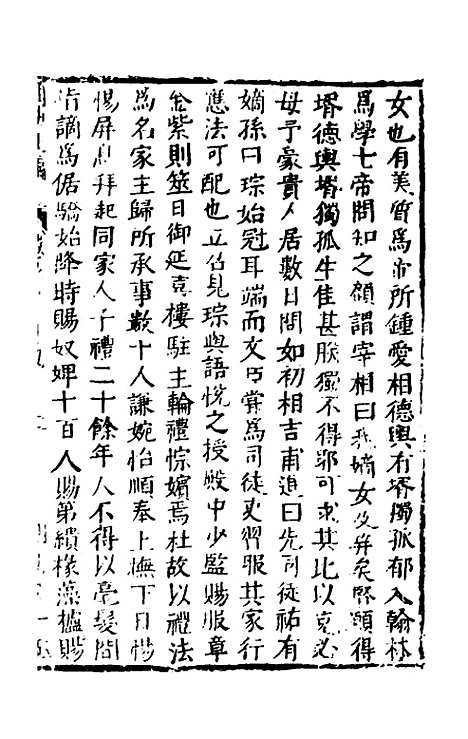 女也有美質爲帝所鍾愛相德輿有壻獨孤郁入翰林
爲學士帝問知之顧謂宰相曰我嫡女及笄矣既頗得
壻德輿壻獨孤生佳甚朕獨不得耶可求其比以
毋予豪貴人居數日問如初相吉甫進曰先司徒祐有
嫡孫曰琮始冠耳端而文再嘗爲司徒吏習服其家行
應法可配也立召見琮與語悅之授殿中少監賜服章
金紫則筮日御延喜樓駐主輪禮悰嬪焉杜故以禮法
爲名家主歸所承事數十人謙婉怡順奉上撫下日惕
惕屏息拜起同家人子禮二十餘年人不得以毫髮間
指謫爲倨驕始降時賜奴婢十百人賜第繢椽藻櫨賜